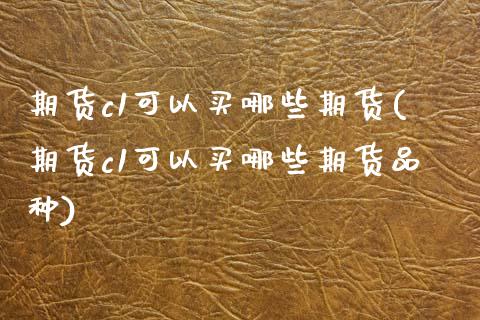 期货c1可以买哪些期货(
期货c1可以买哪些期货品
种)